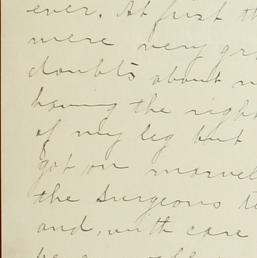 ever. At first th
were very gr
doubts about m
having the right
of my leg but
got on marvel
the surgeons te
and, with care